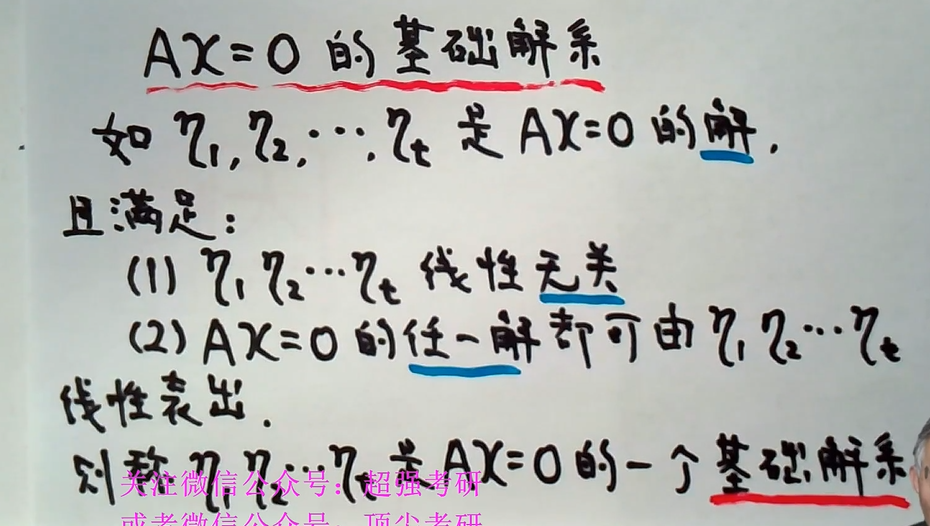 AX=0 的基础解系
如 η₁,η₂,⋯,ηₜ 是 AX=0 的解,
且满足:
(1) η₁ η₂⋯ηₜ 线性无关
(2) AX=0 的任一解都可由 η₁ η₂⋯ηₜ
线性表出.
则称 η₁ η₂⋯ηₜ 是 AX=0 的一个基础解系
关注微信公众号：超强考研
或者微信公众号：顶尖考研